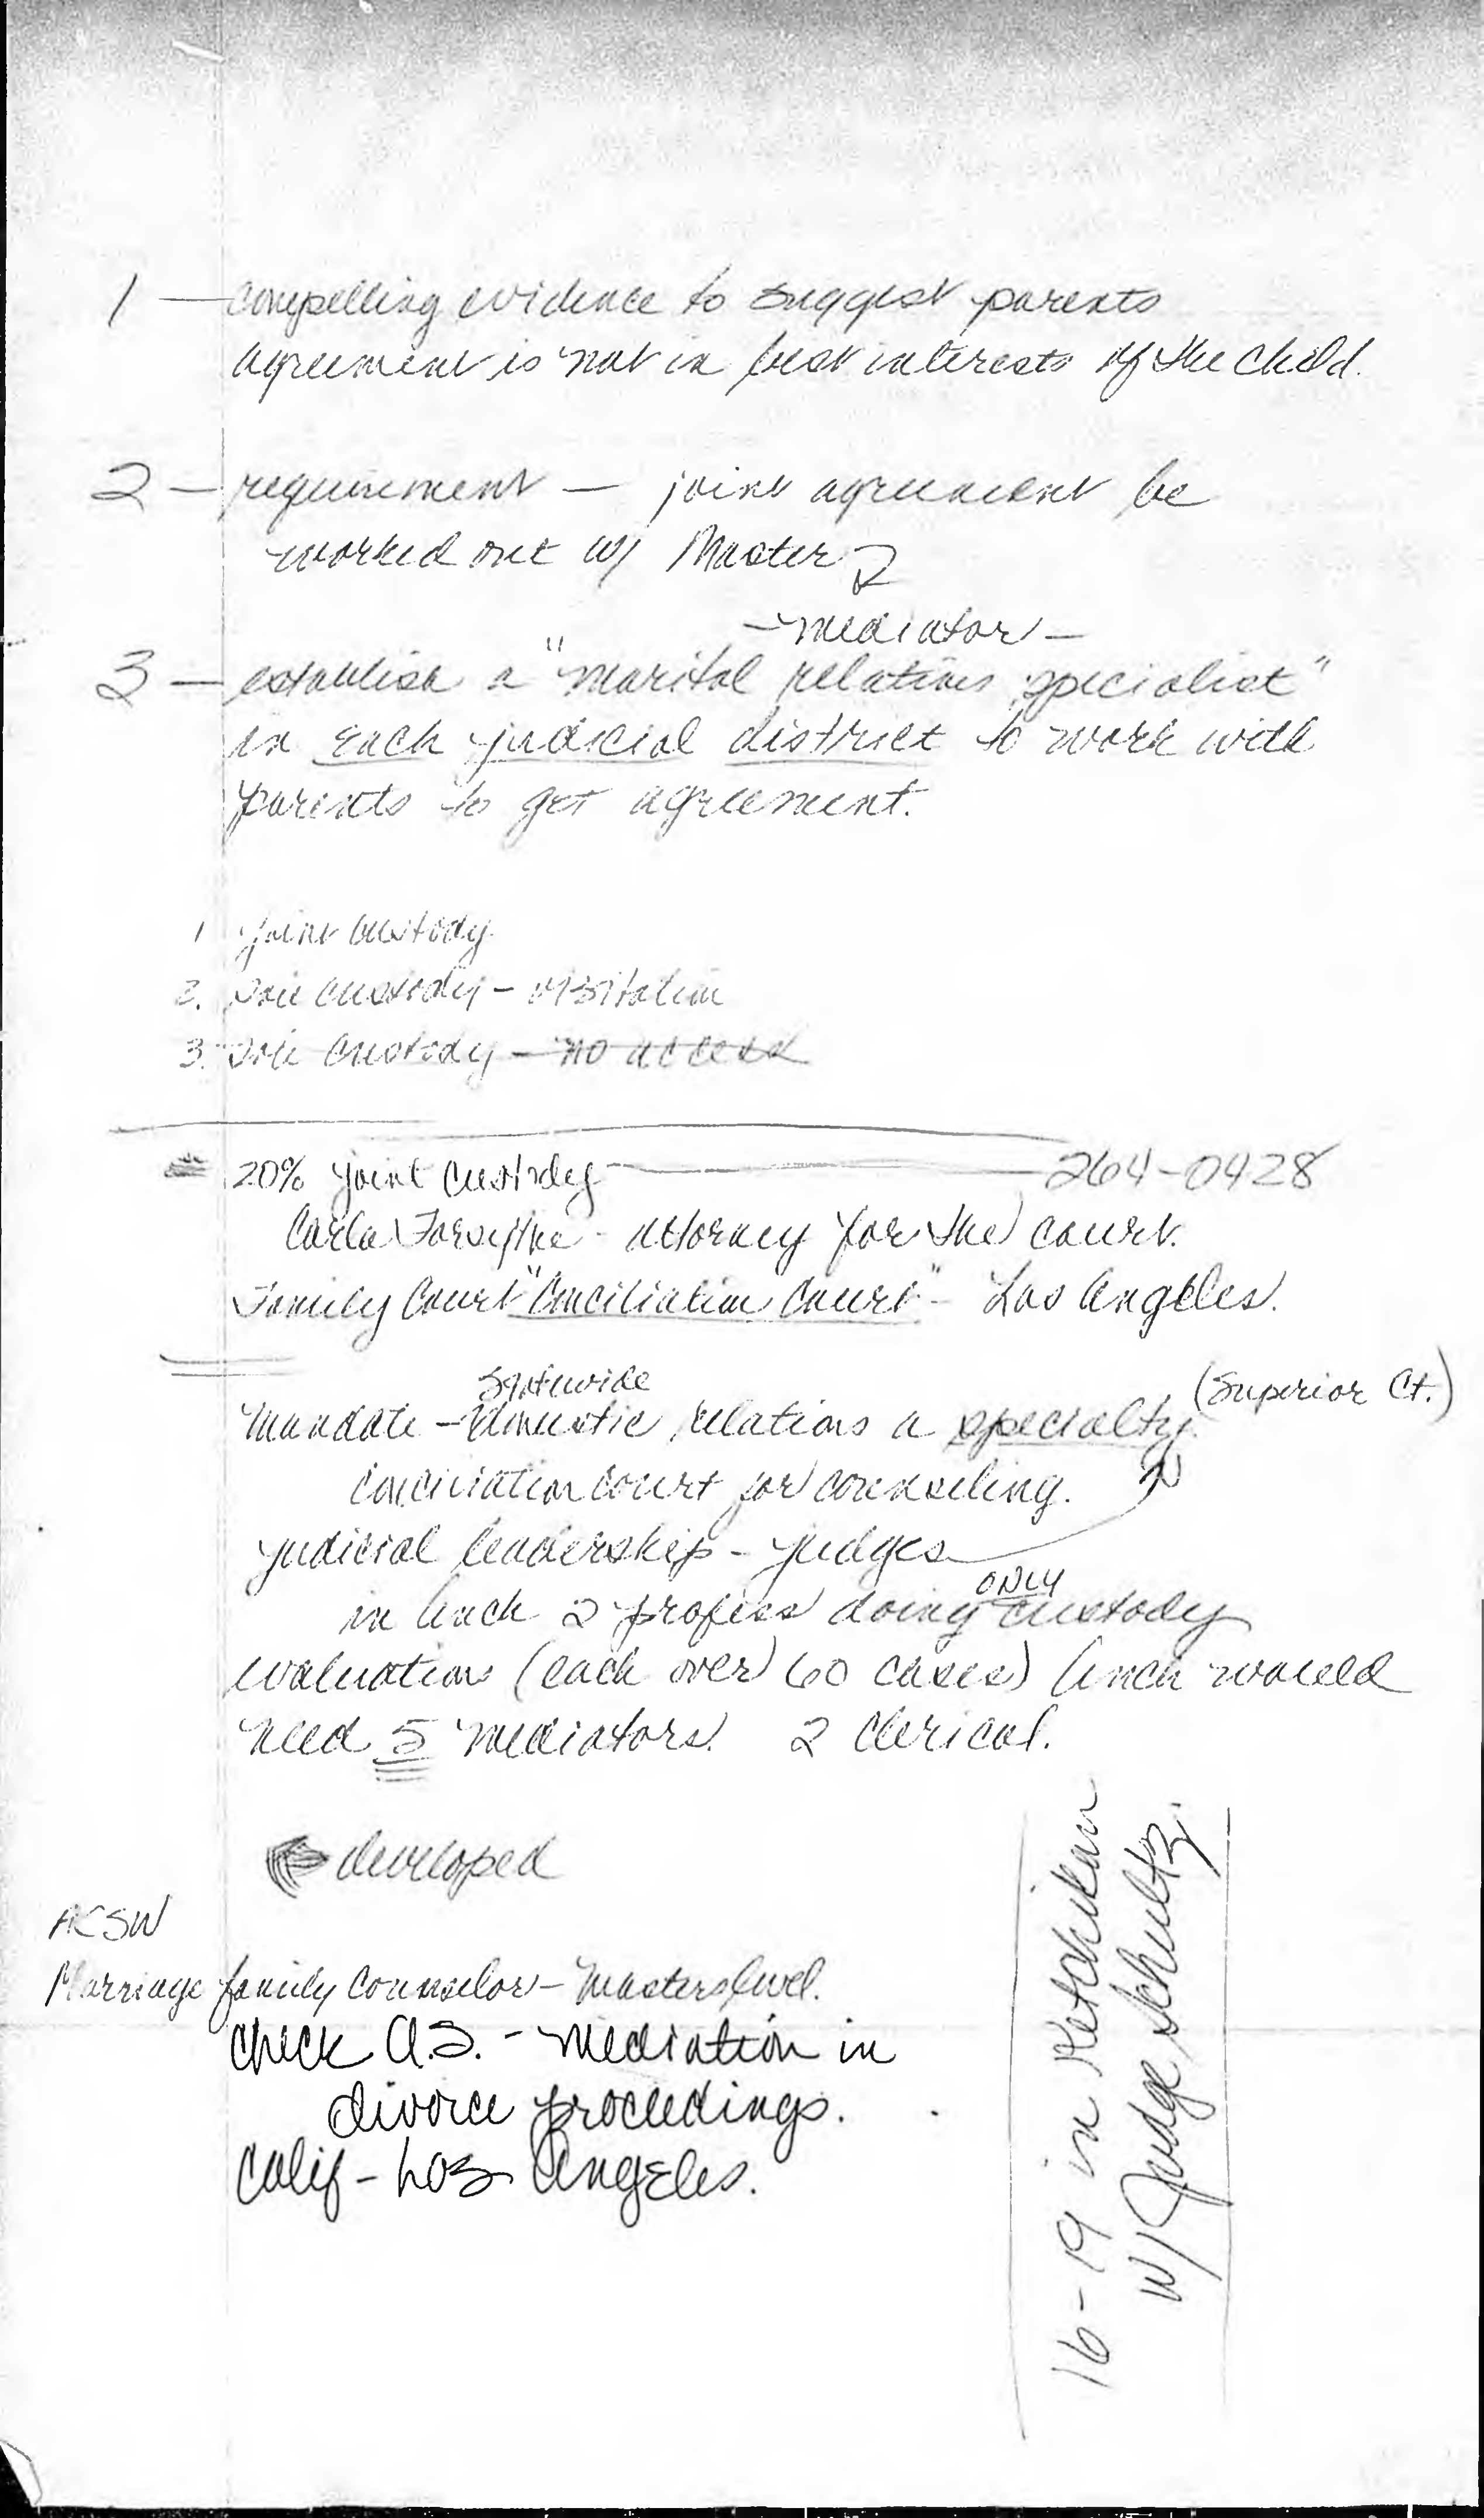 1 — compelling evidence to suggest parents
agreement is not in best interests of the child.
2 — requirement — joint agreement be
worked out w/ Master
— mediator —
3 — establish a "marital relations specialist"
in each judicial district to work with
parents to get agreement.
1 joint custody
2. Sole custody - visitation
3. Sole custody - no access
20% joint custody — 264-0428
Carla Forsythe - attorney for the court.
Family Court "Conciliation Court" - Los Angeles.
Statewide
(Superior Ct.)
Mandate - domestic relations a specialty.
conciliation court for counseling.
judicial leadership - judges
ONLY
in Anch 2 profess doing custody
evaluation (each over 60 cases) Anch would
need 5 mediators. 2 clerical.
developed
ACSW
Marriage family counselor - Masters level.
check A.S. - mediation in
divorce proceedings.
Calif - Los Angeles.
16-19 in Ketchikan
w/ Judge Schultz.